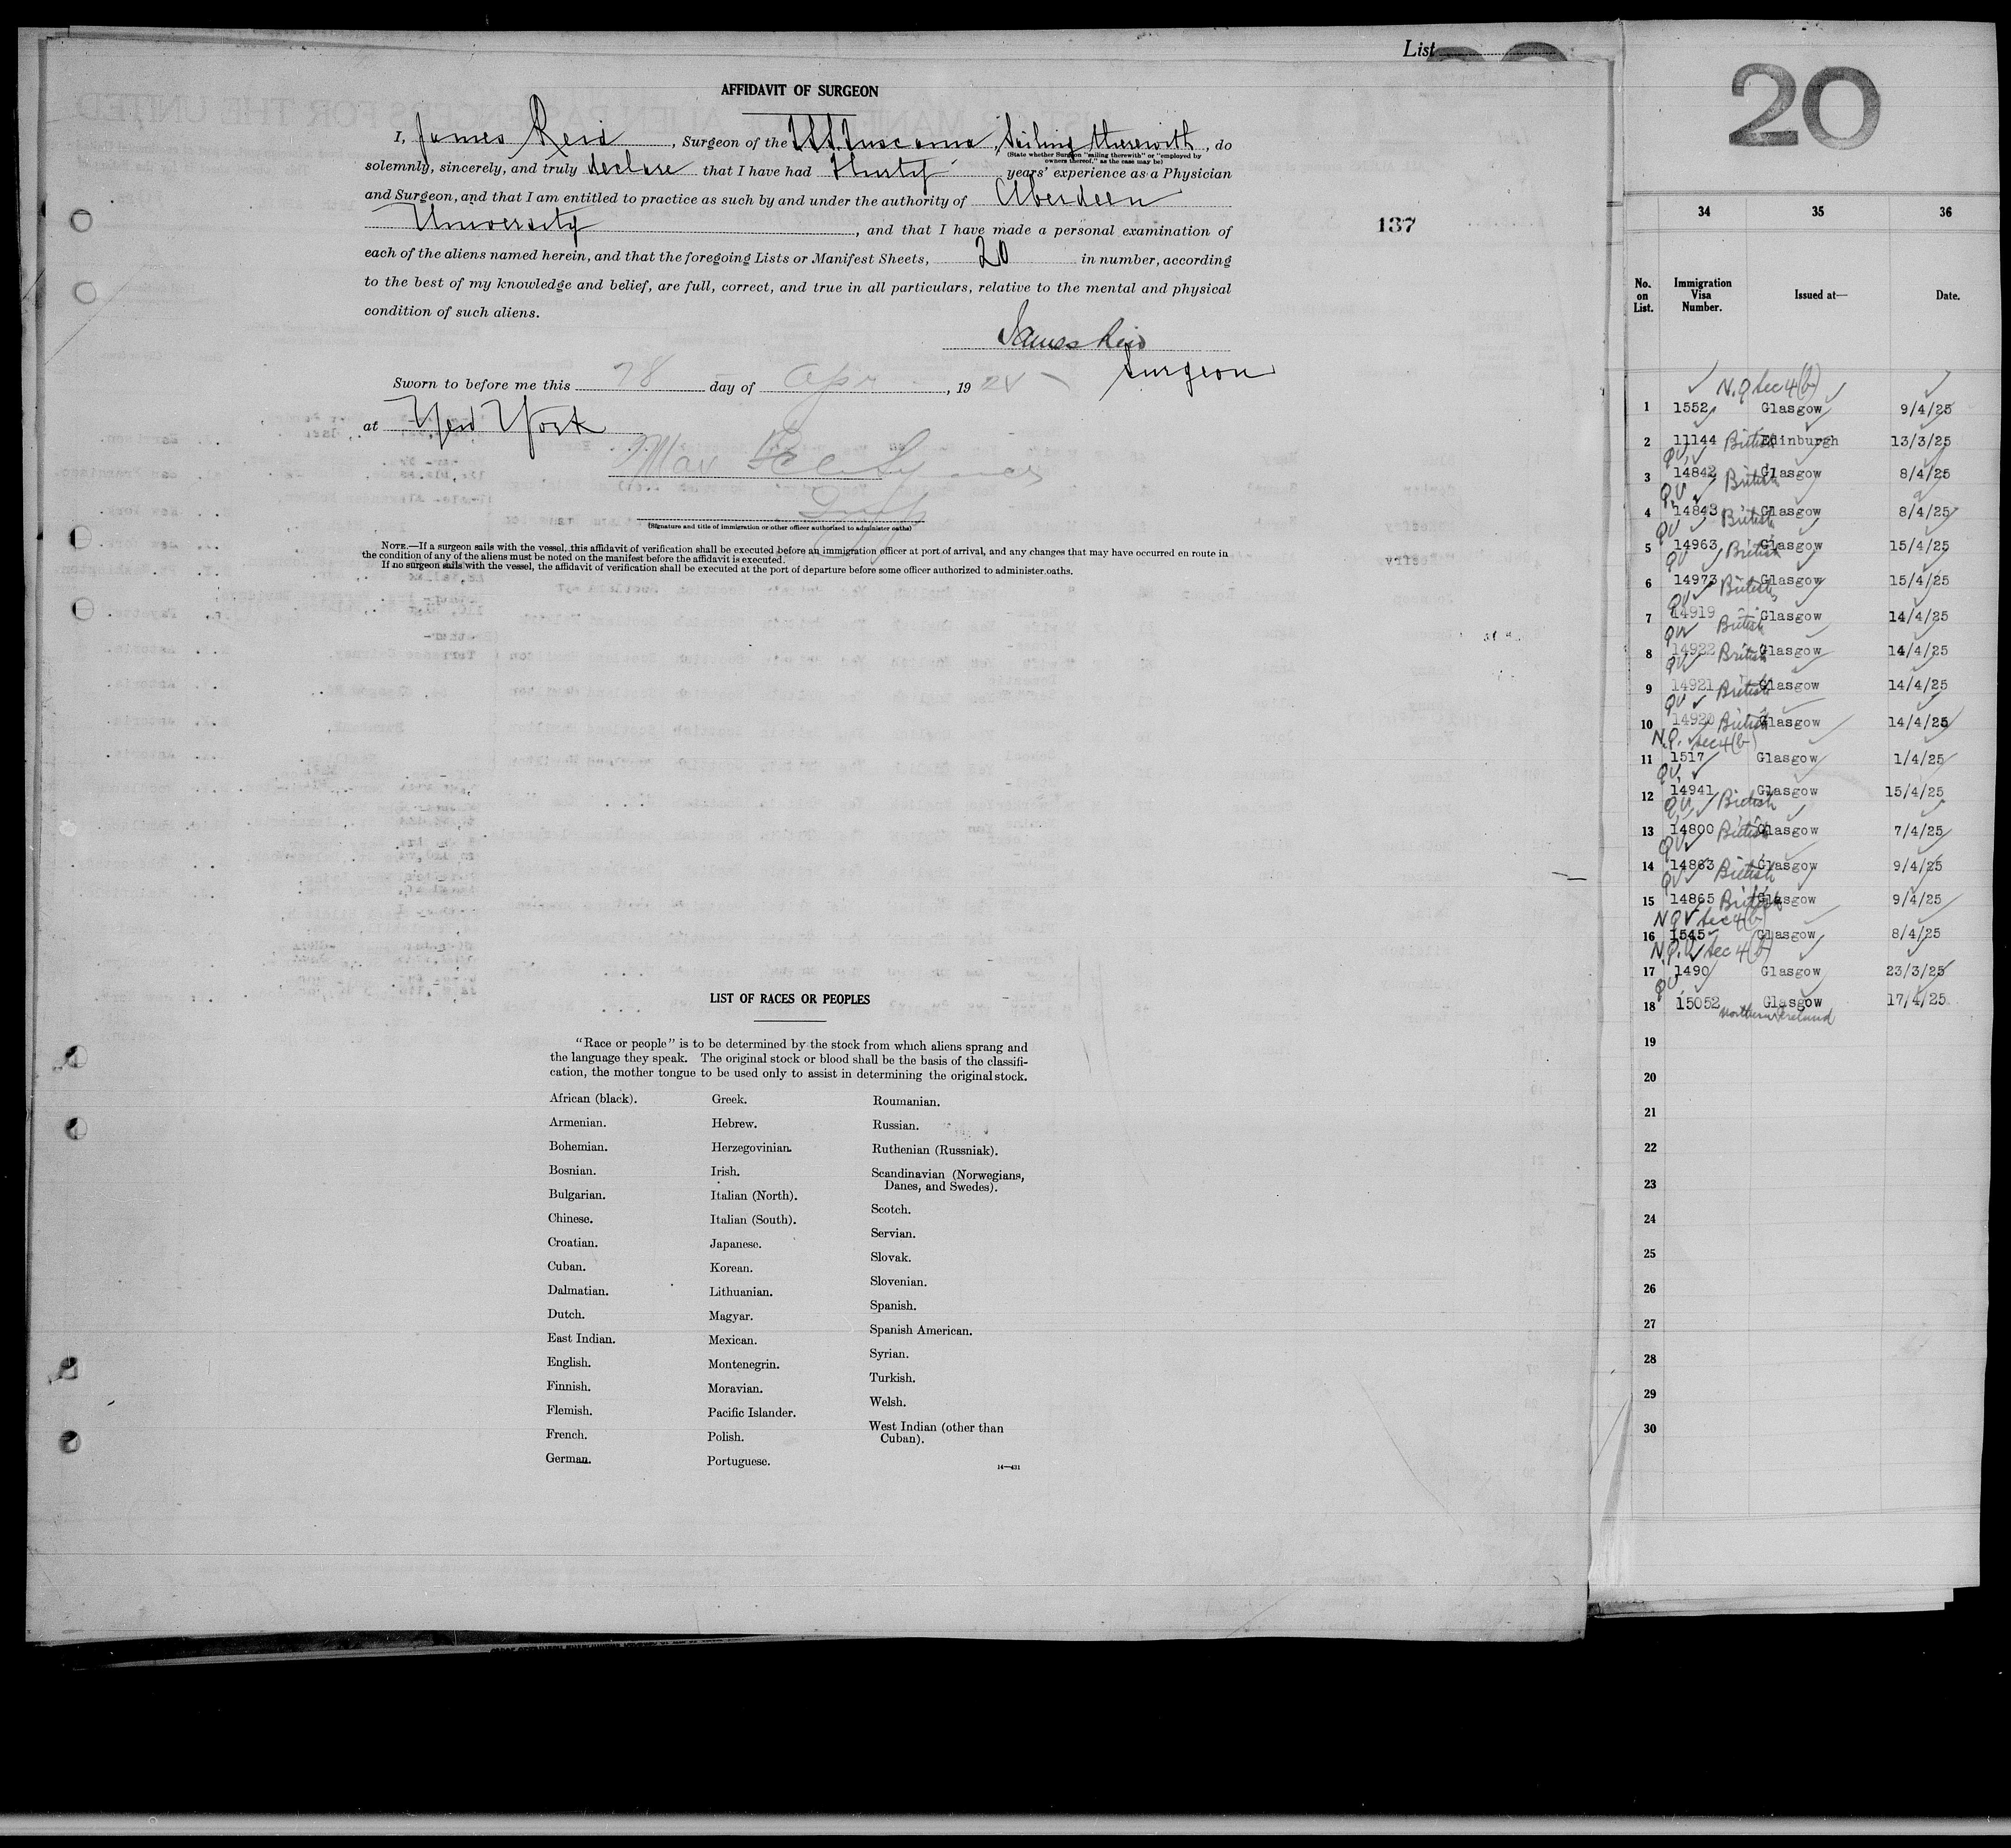 List
AFFIDAVIT OF SURGEON
I, James Reid, Surgeon of the T.S.S. Tuscania, Sailing therewith, do
(State whether Surgeon "sailing therewith" or "employed by
owners thereof," as the case may be)
solemnly, sincerely, and truly declare that I have had Thirty years' experience as a Physician
and Surgeon, and that I am entitled to practice as such by and under the authority of Aberdeen
University, and that I have made a personal examination of
each of the aliens named herein, and that the foregoing Lists or Manifest Sheets, 20 in number, according
to the best of my knowledge and belief, are full, correct, and true in all particulars, relative to the mental and physical
condition of such aliens.
James Reid
Surgeon
Sworn to before me this 28 day of Apr, 19 25
at New York
(Signature and title of immigration or other officer authorized to administer oaths)
NOTE.—If a surgeon sails with the vessel, this affidavit of verification shall be executed before an immigration officer at port of arrival, and any changes that may have occurred en route in
the condition of any of the aliens must be noted on the manifest before the affidavit is executed.
If no surgeon sails with the vessel, the affidavit of verification shall be executed at the port of departure before some officer authorized to administer oaths.
137
LIST OF RACES OR PEOPLES
"Race or people" is to be determined by the stock from which aliens sprang and
the language they speak. The original stock or blood shall be the basis of the classifi-
cation, the mother tongue to be used only to assist in determining the original stock.
African (black).
Armenian.
Bohemian.
Bosnian.
Bulgarian.
Chinese.
Croatian.
Cuban.
Dalmatian.
Dutch.
East Indian.
English.
Finnish.
Flemish.
French.
German.
Greek.
Hebrew.
Herzegovinian.
Irish.
Italian (North).
Italian (South).
Japanese.
Korean.
Lithuanian.
Magyar.
Mexican.
Montenegrin.
Moravian.
Pacific Islander.
Polish.
Portuguese.
Roumanian.
Russian.
Ruthenian (Russniak).
Scandinavian (Norwegians,
Danes, and Swedes).
Scotch.
Servian.
Slovak.
Slovenian.
Spanish.
Spanish American.
Syrian.
Turkish.
Welsh.
West Indian (other than
Cuban).
14—431
20
34 35 36
No. on List. Immigration Visa Number. Issued at— Date.
N.Q Sec 4(b)
1 1552 Glasgow 9/4/25
2 11144 British Edinburgh 13/3/25
QV
3 14842 British Glasgow 8/4/25
QV
4 14843 British Glasgow 8/4/25
QV
5 14963 British Glasgow 15/4/25
QV
6 14973 British Glasgow 15/4/25
QV
7 14919 British Glasgow 14/4/25
QV
8 14922 British Glasgow 14/4/25
QV
9 14921 British Glasgow 14/4/25
QV
10 14920 British Glasgow 14/4/25
N.Q. Sec 4(b)
11 1517 Glasgow 1/4/25
QV
12 14941 British Glasgow 15/4/25
QV
13 14800 British Glasgow 7/4/25
QV
14 14863 British Glasgow 9/4/25
QV
15 14865 British Glasgow 9/4/25
NQV Sec 4(b)
16 1545 Glasgow 8/4/25
N.Q.V Sec 4(b)
17 1490 Glasgow 23/3/25
QV
18 15052 Glasgow 17/4/25
Northern Ireland
19
20
21
22
23
24
25
26
27
28
29
30